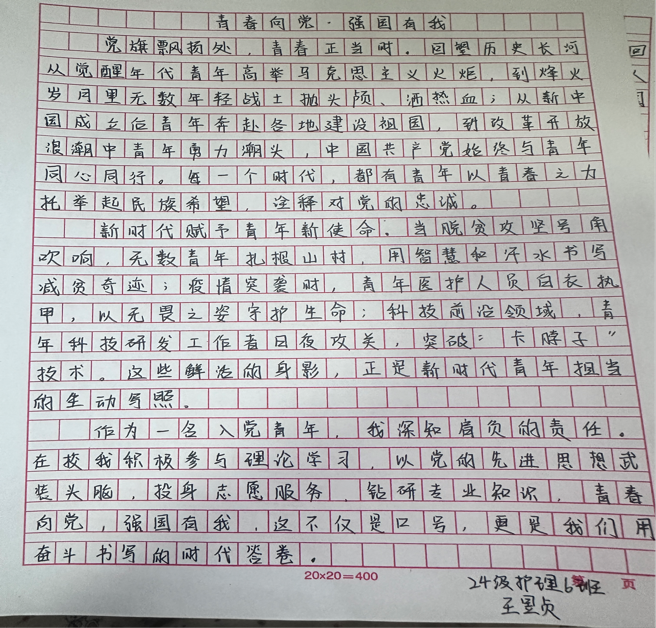 青春向党·强国有我
党旗飘扬处，青春正当时。回望历史长河
从觉醒年代青年高举马克思主义火炬，到烽火
岁月里无数年轻战士抛头颅、洒热血；从新中
国成立后青年奔赴各地建设祖国，到改革开放
浪潮中青年勇力潮头，中国共产党始终与青年
同心同行。每一个时代，都有青年以青春之力
托举起民族希望，诠释对党的忠诚。
新时代赋予青年新使命。当脱贫攻坚号角
吹响，无数青年扎根山村，用智慧和汗水书写
减贫奇迹；疫情突袭时，青年医护人员白衣执
甲，以无畏之姿守护生命；科技前沿领域，青
年科技研发工作者日夜攻关，突破“卡脖子”
技术。这些鲜活的身影，正是新时代青年担当
的生动写照。
作为一名入党青年，我深知肩负的责任。
在校我积极参与理论学习，以党的先进思想武
装头脑，投身志愿服务，钻研专业知识，青春
向党，强国有我，这不仅是口号，更是我们用
奋斗书写的时代答卷。
20×20=400
第 页
24级护理6班
回
人